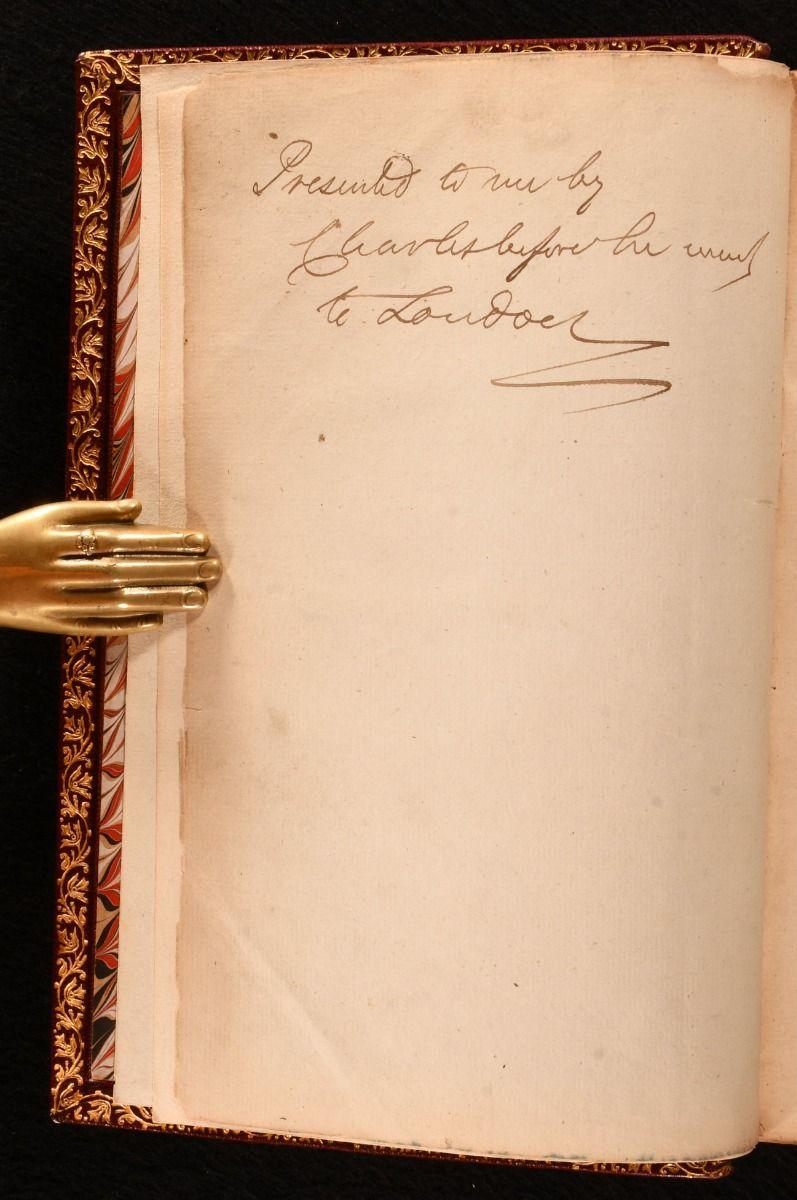 Presented to me by
Charles before he went
to London